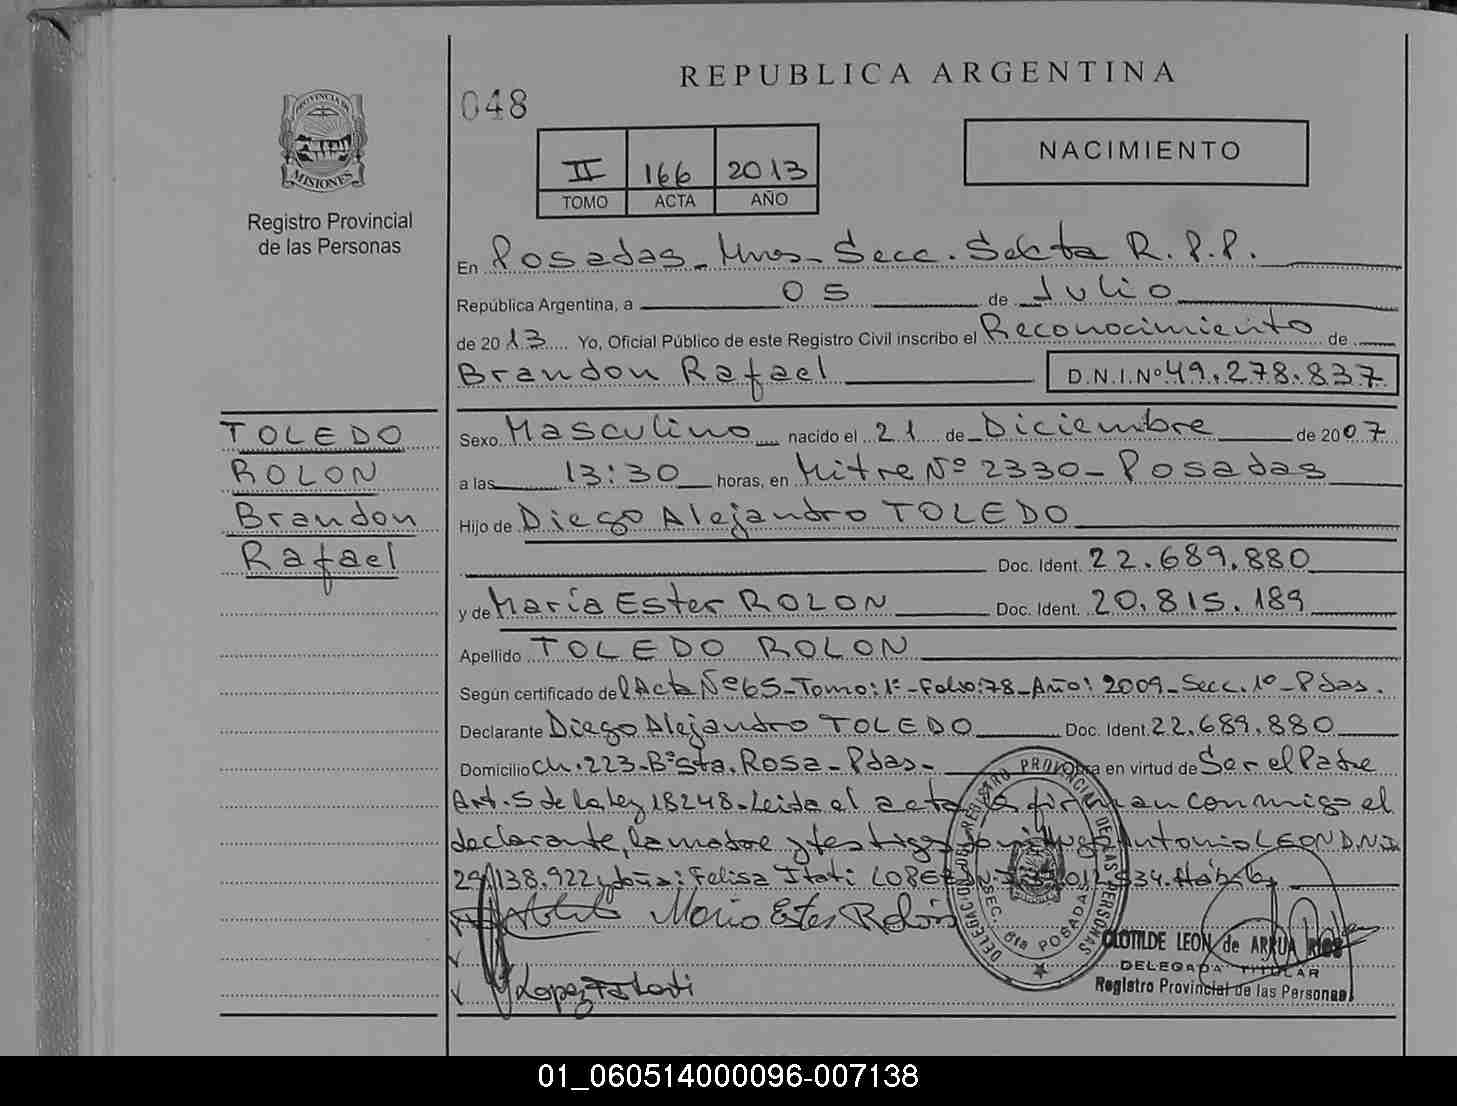 REPUBLICA ARGENTINA
048
PROVINCIA DE
MISIONES
Registro Provincial
de las Personas
II 166 2013
TOMO ACTA AÑO
NACIMIENTO
En Posadas - Mnes - Secc. Sexta R.P.P.
República Argentina, a 05 de Julio
de 2013 Yo, Oficial Público de este Registro Civil inscribo el Reconocimiento de
Brandon Rafael D.N.I. Nº 49.278.837
TOLEDO
ROLON
Brandon
Rafael
Sexo Masculino nacido el 21 de Diciembre de 2007
a las 13:30 horas, en Mitre Nº 2330 - Posadas
Hijo de Diego Alejandro TOLEDO
Doc. Ident. 22.689.880
y de María Ester ROLON Doc. Ident. 20.815.189
Apellido TOLEDO ROLON
Según certificado del Acta Nº 65 - Tomo: 1º - Folio: 78 - Año: 2009 - Secc. 1º - Pdas.
Declarante Diego Alejandro TOLEDO Doc. Ident. 22.689.880
Domicilio Ch. 223 - Bº Sta. Rosa - Pdas - Obra en virtud de Ser el Padre
Art. 5 de la Ley 18248 - Leida el acta la firman conmigo el
declarante, la madre y testigos Antonio LEON D.N.I
29.138.922 y doña: Felisa Itati
Maria Ester Rolón
Lopez F Itati
DELEGACION DEL REGISTRO PROVINCIAL DE LAS PERSONAS
SEC. 6ta POSADAS
CLOTILDE LEON de ARRUA RIOS
DELEGADA TITULAR
Registro Provincial de las Personas
01_060514000096-007138